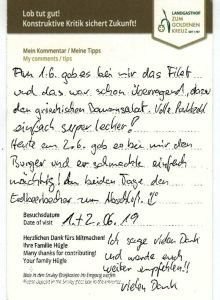 Lob tut gut!
Konstruktive Kritik sichert Zukunft!
LANDGASTHOF
ZUM
GOLDENEN
KREUZ
Mein Kommentar / Meine Tipps
My comments / tips
Am 1.6. gab es bei mir das Filet...
und das war schon überragend, dazu
den griechischen Bauernsalat. Volle Punktzahl
einfach super lecker!
Heute am 2.6. gab es bei mir den
Burger und er schmeckte einfach
mächtig! An beiden Tagen den
Erdbeerbecher zum Abschluß.
Besuchsdatum
Date of visit
1.+2.06.19
Herzlichen Dank fürs Mitmachen!
Ihre Familie Hügle
Many thanks for contributing!
Your family Hügle
Ich sage vielen Dank
und werde euch
weiter empfehlen!!
vielen Dank
Bitte in den Smiley-Briefkasten im Eingang werfen.
Please deposit in the Smiley post box in the entrance.